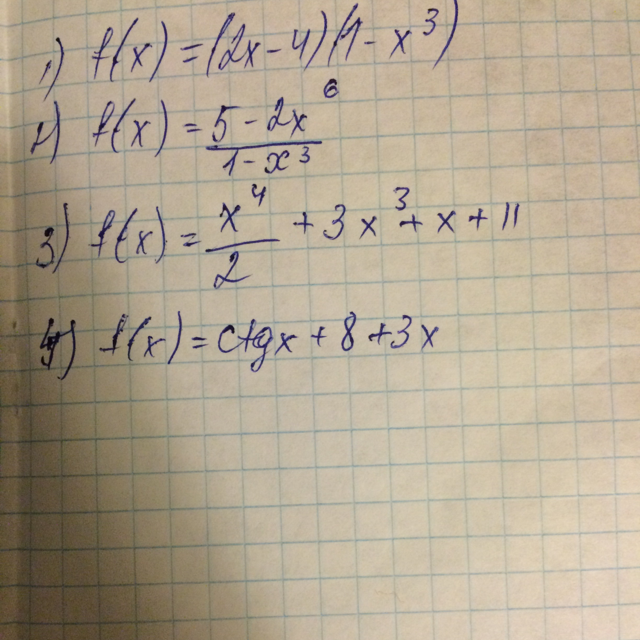 1) f(x) = (2x-4)(1-x³)
2) f(x) = (5-2x⁶)/(1-x³)
3) f(x) = x⁴/2 + 3x³ + x + 11
4) f(x) = ctgx + 8 + 3x